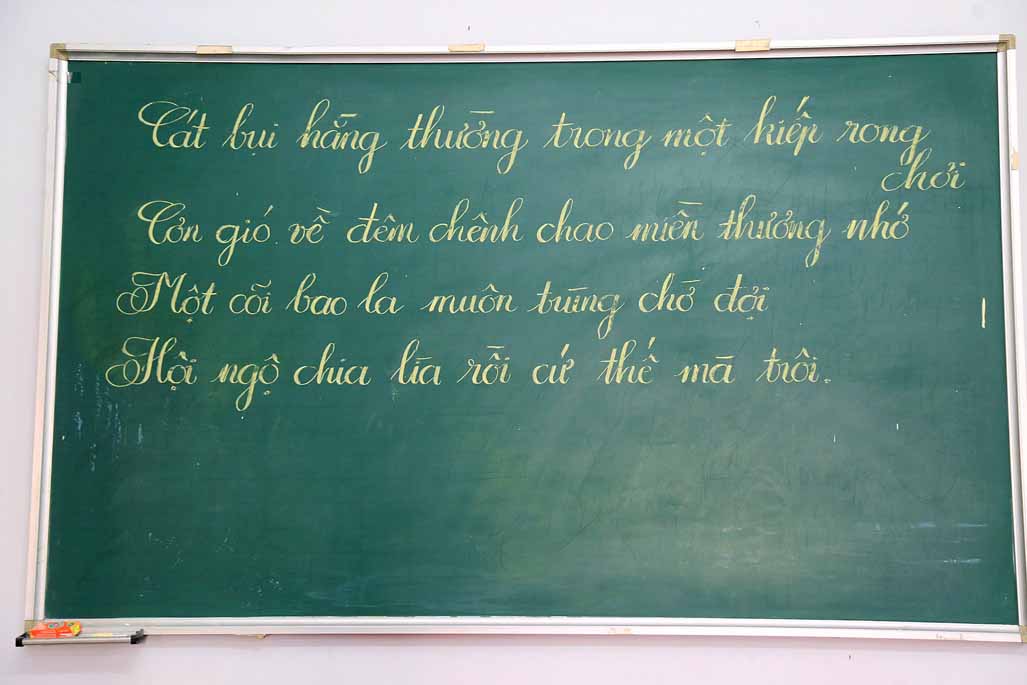 Cát bụi hằng thường trong một kiếp rong
chơi
Cơn gió về đêm chênh chao miền thương nhớ
Một cõi bao la muôn trùng chờ đợi
Hội ngộ chia lìa rồi cứ thế mà trôi.